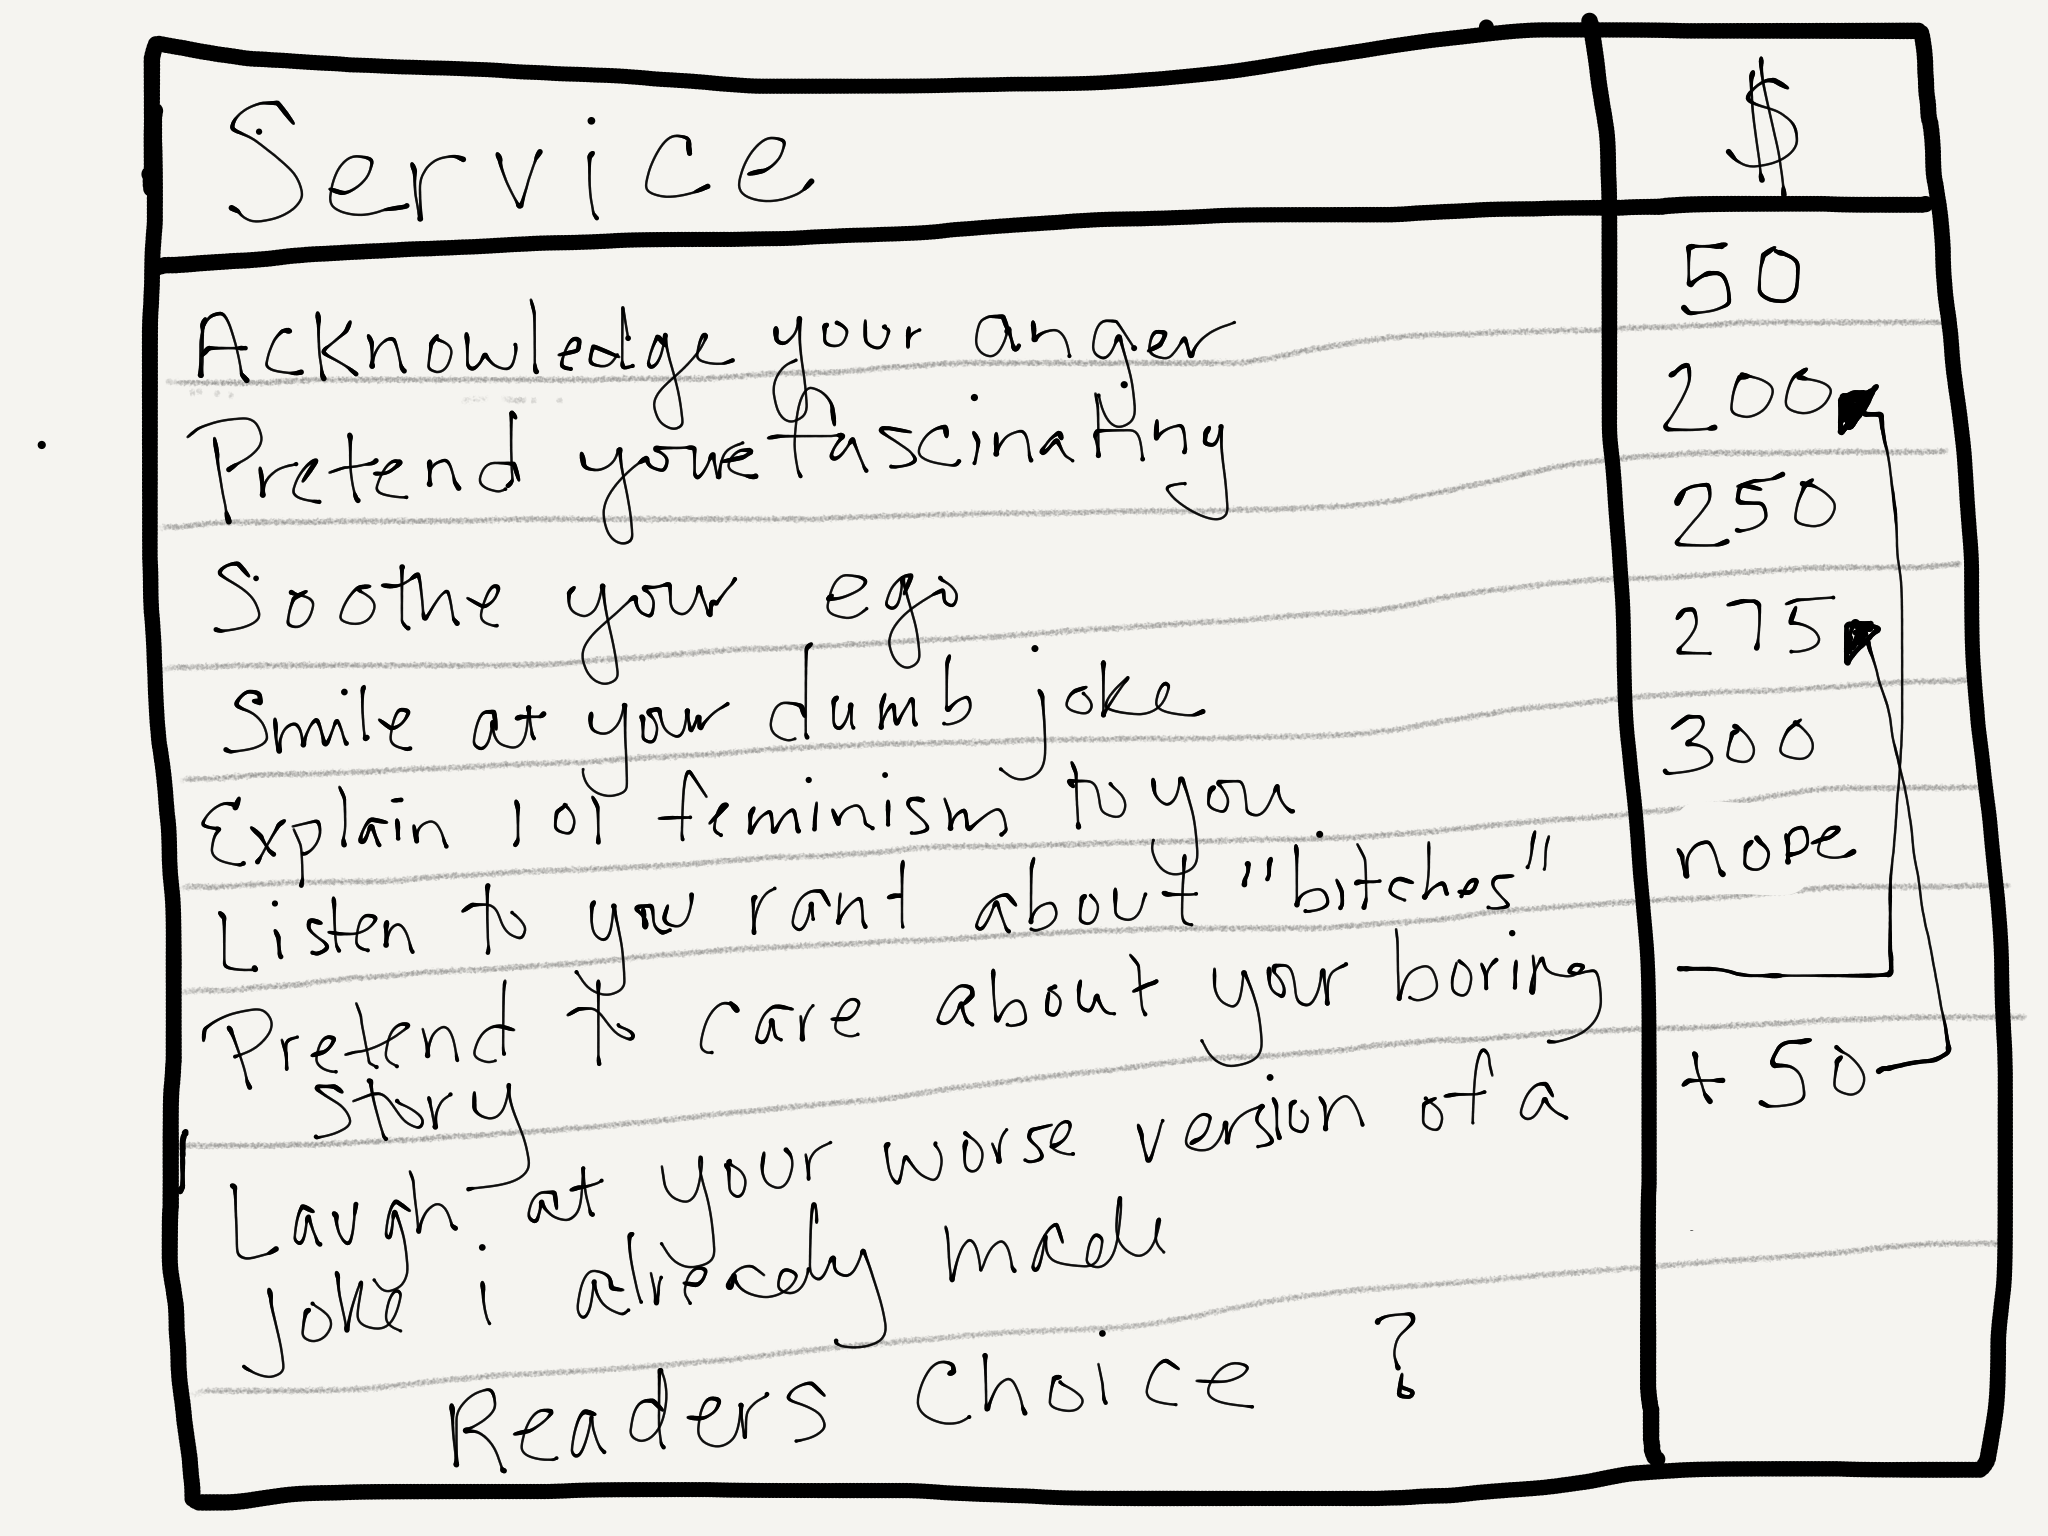 Service $
Acknowledge your anger 50
Pretend youre fascinating 200
Soothe your ego 250
Smile at your dumb joke 275
Explain 101 feminism to you. 300
Listen to you rant about "bitches" nope
Pretend to care about your boring
story
Laugh at your worse version of a + 50
joke i already made
Readers Choice ?